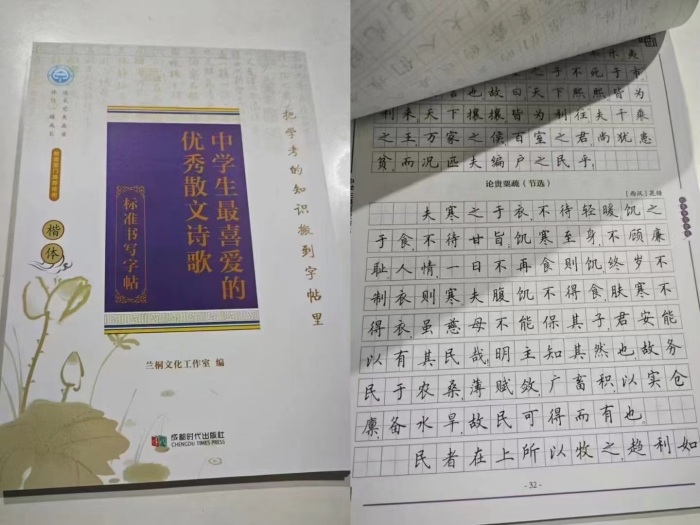 把学考的知识搬到字帖里
中学生最喜爱的
优秀散文诗歌
标准书写字帖
楷体
兰桐文化工作室 编
成都时代出版社
CHENGDU TIMES PRESS
之于不死于市
也故曰天下熙熙皆为
利来天下攘攘皆为利往夫千乘
之王,万家之侯,百室之君,尚犹患
贫,而况匹夫编户之民乎,
论贵粟疏(节选)
[西汉]晁错
夫寒之于衣,不待轻暖,饥之
于食,不待甘旨,饥寒至身,不顾廉
耻人情,一日不再食则饥,终岁不
制衣则寒夫腹饥不得食,肤寒不
得衣,虽慈母不能保其子,君安能
以有其民哉,明主知其然也,故务
民于农桑,薄赋敛,广畜积,以实仓
廪,备水旱,故民可得而有也,
民者,在上所以牧之,趋利如
- 32 -